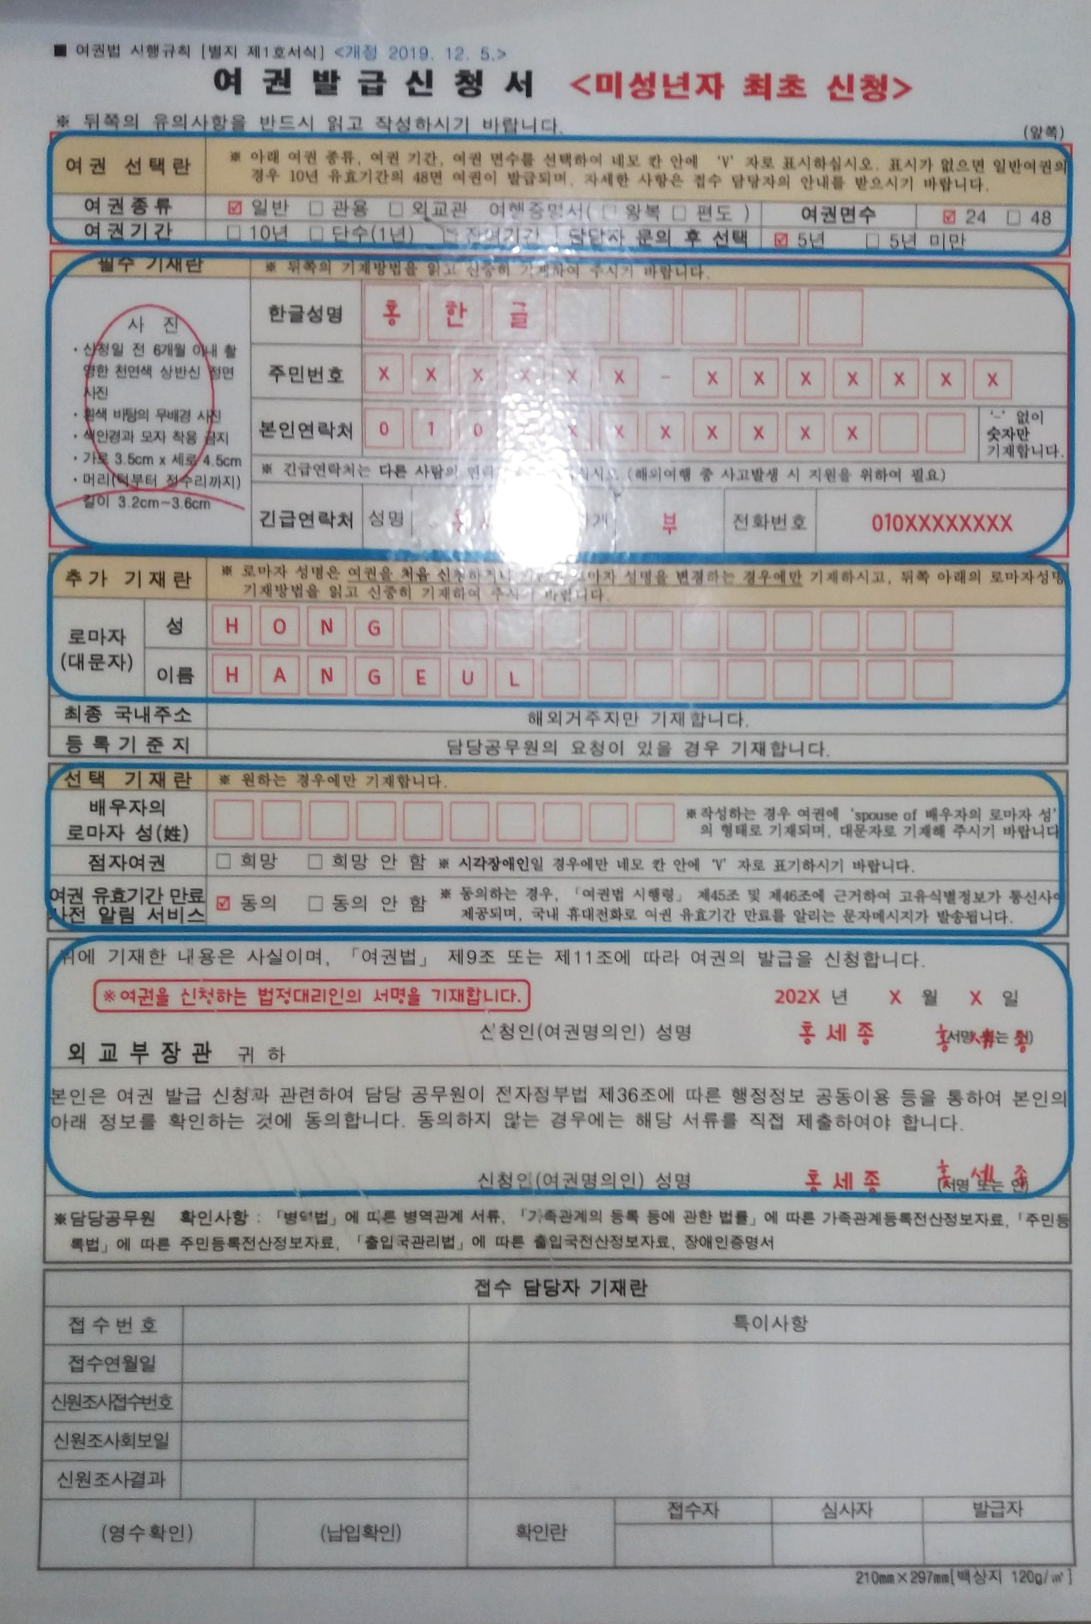 ■ 여권법 시행규칙 [별지 제1호서식] <개정 2019. 12. 5.>
여 권 발 급 신 청 서 <미성년자 최초 신청>
※ 뒤쪽의 유의사항을 반드시 읽고 작성하시기 바랍니다. (앞쪽)
여권 선택란 ※ 아래 여권 종류, 여권 기간, 여권 면수를 선택하여 네모 칸 안에 'V' 자로 표시하십시오. 표시가 없으면 일반여권의
경우 10년 유효기간의 48면 여권이 발급되며, 자세한 사항은 접수 담당자의 안내를 받으시기 바랍니다.
여권종류 ☑ 일반 □ 관용 □ 외교관 여행증명서( □ 왕복 □ 편도 ) 여권면수 ☑ 24 □ 48
여권기간 □ 10년 □ 단수(1년) □ 잔여기간 담당자 문의 후 선택 ☑ 5년 □ 5년 미만
필수 기재란 ※ 뒤쪽의 기재방법을 읽고 신중히 기재하여 주시기 바랍니다.
사 진
· 신청일 전 6개월 이내 촬
영한 천연색 상반신 정면
사진
· 흰색 바탕의 무배경 사진
· 색안경과 모자 착용 금지
· 가로 3.5cm x 세로 4.5cm
· 머리(턱부터 정수리까지)
길이 3.2cm~3.6cm
한글성명 홍 한 글
주민번호 X X X X X X - X X X X X X X
본인연락처 0 1 0 X X X X X X X '-' 없이
숫자만
기재합니다.
※ 긴급연락처는 다른 사람의 (해외여행 중 사고발생 시 지원을 위하여 필요)
긴급연락처 성명 부 전화번호 010XXXXXXXX
추가 기재란 ※ 로마자 성명은 여권을 처음 신청하거나 로마자 성명을 변경하는 경우에만 기재하시고, 뒤쪽 아래의 로마자성명
기재방법을 읽고 신중히 기재하여 주시기 바랍니다.
로마자
(대문자)
성 H O N G
이름 H A N G E U L
최종 국내주소 해외거주자만 기재합니다.
등 록 기 준 지 담당공무원의 요청이 있을 경우 기재합니다.
선택 기재란 ※ 원하는 경우에만 기재합니다.
배우자의
로마자 성(姓)
※작성하는 경우 여권에 'spouse of 배우자의 로마자 성'
의 형태로 기재되며, 대문자로 기재해 주시기 바랍니다
점자여권 □ 희망 □ 희망 안 함 ※ 시각장애인일 경우에만 네모 칸 안에 'V' 자로 표기하시기 바랍니다.
여권 유효기간 만료
사전 알림 서비스
☑ 동의 □ 동의 안 함 ※ 동의하는 경우, 「여권법 시행령」 제45조 및 제46조에 근거하여 고유식별정보가 통신사에
제공되며, 국내 휴대전화로 여권 유효기간 만료를 알리는 문자메시지가 발송됩니다.
위에 기재한 내용은 사실이며, 「여권법」 제9조 또는 제11조에 따라 여권의 발급을 신청합니다.
※여권을 신청하는 법정대리인의 서명을 기재합니다. 202X 년 X 월 X 일
신청인(여권명의인) 성명 홍 세 종 홍 세 종 (서명 또는 인)
외 교 부 장 관 귀 하
본인은 여권 발급 신청과 관련하여 담당 공무원이 전자정부법 제36조에 따른 행정정보 공동이용 등을 통하여 본인의
아래 정보를 확인하는 것에 동의합니다. 동의하지 않는 경우에는 해당 서류를 직접 제출하여야 합니다.
신청인(여권명의인) 성명 홍 세 종 홍 세 종 (서명 또는 인)
※담당공무원 확인사항 : 「병역법」에 따른 병역관계 서류, 「가족관계의 등록 등에 관한 법률」에 따른 가족관계등록전산정보자료, 「주민등
록법」에 따른 주민등록전산정보자료, 「출입국관리법」에 따른 출입국전산정보자료, 장애인증명서
접수 담당자 기재란
접 수 번 호 특이사항
접수연월일
신원조사접수번호
신원조사회보일
신원조사결과
(영수확인) (납입확인) 확인란 접수자 심사자 발급자
210㎜×297㎜[백상지 120g/㎡]